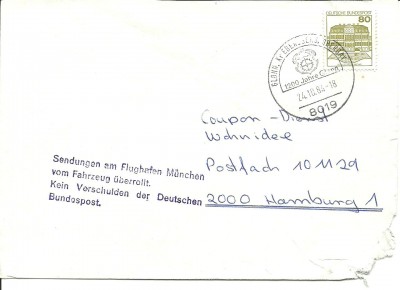 DEUTSCHE BUNDESPOST
80
1200 Jahre Glonn
24.10.8
-18
8019
Coupon - Dienst
Wohnidee
Postfach 10 11 29
2000 Hamburg 1
Sendungen am Flughafen München
vom Fahrzeug überrollt.
Kein Verschulden der Deutschen
Bundespost.